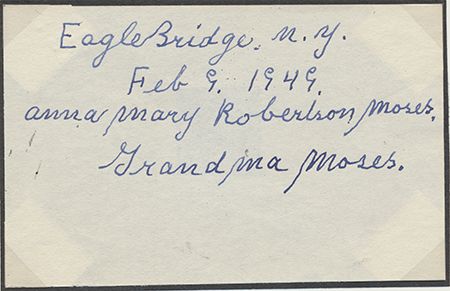 Eagle Bridge. N.Y.
Feb 9. 1949.
anna mary Robertson Moses.
Grandma Moses.